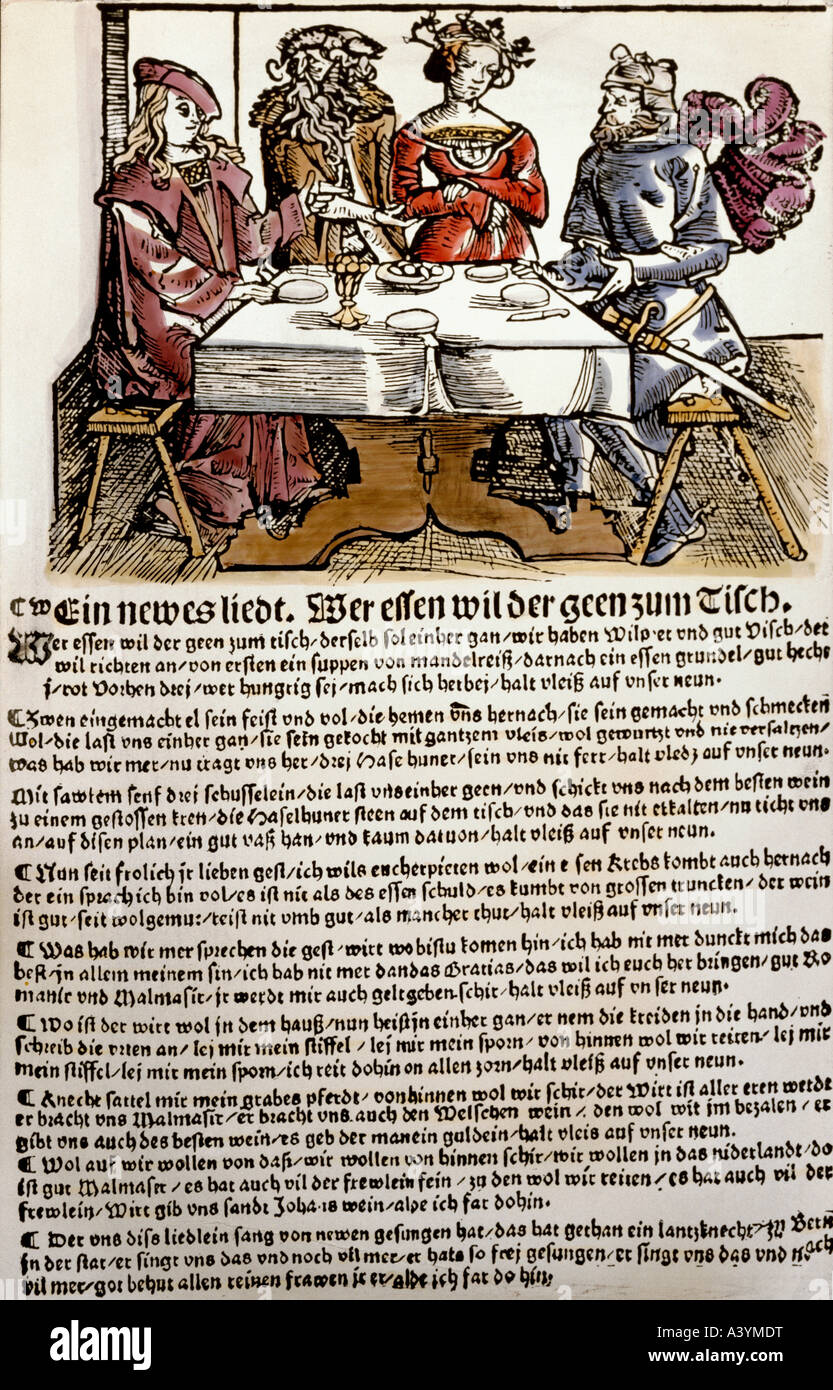 Ein newes liedt. Wer essen wil der geen zum Tisch.
Wer essen wil der geen zum tisch/derselb sol einher gan/wir haben Wilpret vnd gut Visch/det
wil richten an/von ersten ein suppen von mandelreiß/darnach ein essen grundel/gut hecht
/rot Vorhen drej/wer hungrig sej/mach sich herbej/halt vleiß auf vnser neun.
¶ Zwen eingemacht el sein feist vnd vol/die hernach/sie sein gemacht vnd schmecken
wol/die last vns einher gan/sie sein gekocht mit gantzem vleis/wol gewurtzt vnd nie versaltzen/
was hab wir mer/nu tragt vns her/drej Hase huner/sein vns nit ferr/halt auf vnser neun.
Mit sawrem senf drej schusselein/die last vns einher geen/vnd schickt vns nach dem besten wein
zu einem gestossen kren/die Haselhuner steen auf dem tisch/vnd das sie nit erkalten/nu richt vns
an/auf disen plan/ein gut vaß han/vnd kaum daruon/halt vleiß auf vnser neun.
¶ Nun seit frolich jr lieben gest/ich wils euch erpieten wol/ein e sen Krebs kombt auch hernach
der ein sprach ich bin vol/es ist nit als des essen schuld/es kumbt von grossen truncken/der wein
ist gut/seit wolgemut/reist nit vmb gut/als mancher thut/halt vleiß auf vnser neun.
¶ Was hab wir mer sprechen die gest/wirt wo bistu komen hin/ich hab nit mer dunckt mich das
best/jn allem meinem sin/ich hab nit mer dan das Gratias/das wil ich euch her bringen/gut Ro
manir vnd Malmasir/jr werdt mir auch gelt geben schir/halt vleiß auf vn ser neun.
¶ Wo ist der wirt wol jn dem hauß/nun heist jn einher gan/er nem die kreiden jn die hand/vnd
schreib die vrten an/lej mir mein stiffel/lej mir mein sporn/von hinnen wol wir reiten/lej mir
mein stiffel/lej mir mein sporn/ich reit dohin on allen zorn/halt vleiß auf vnser neun.
¶ Knecht sattel mir mein grabes pferdt/von hinnen wol wir schir/der Wirt ist aller eren werdt
er bracht vns Malmasir/er bracht vns auch den Welschen wein/den wol wir jm bezalen/er
gibt vns auch des besten wein/es geb der man ein guldein/halt vleis auf vnser neun.
¶ Wol auf wir wollen von daß/wir wollen von hinnen schir/wir wollen jn das niderlandt/do
ist gut Malmasir/es hat auch vil der frewlein fein/zu den wol wir reiten/es hat auch vil der
frewlein/Wirt gib vns sandt Johans wein/alde ich far dohin.
¶ Der vns diss liedlein sang von newen gesungen hat/das hat gethan ein lantzknecht/zu Bern
jn der stat/er singt vns das vnd noch vil mer/er hats so frej gesungen/er singt vns das vnd noch
vil mer/got behut allen reinen frawen jr er/alde ich far do hin.
alamy
Image ID: A3YMDT
www.alamy.com